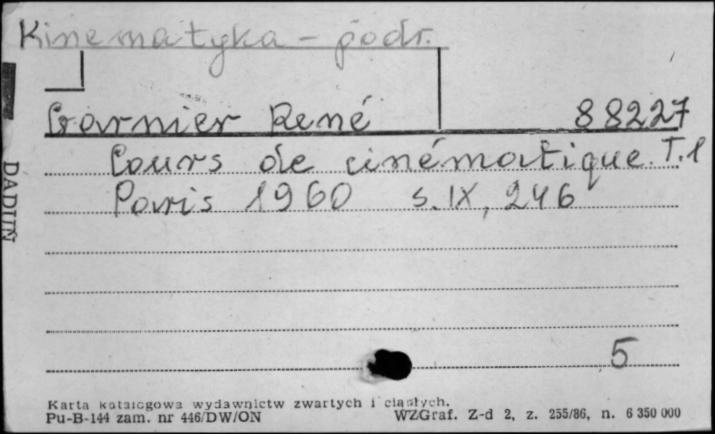 Kinematyka - podr.
Garnier René 88227
Cours de cinématique. T.1
Paris 1960 s. IX, 246
5
Karta katalogowa wydawnictw zwartych i ciągłych.
Pu-B-144 zam. nr 446/DW/ON WZGraf. Z-d 2, z. 255/86, n. 6 350 000